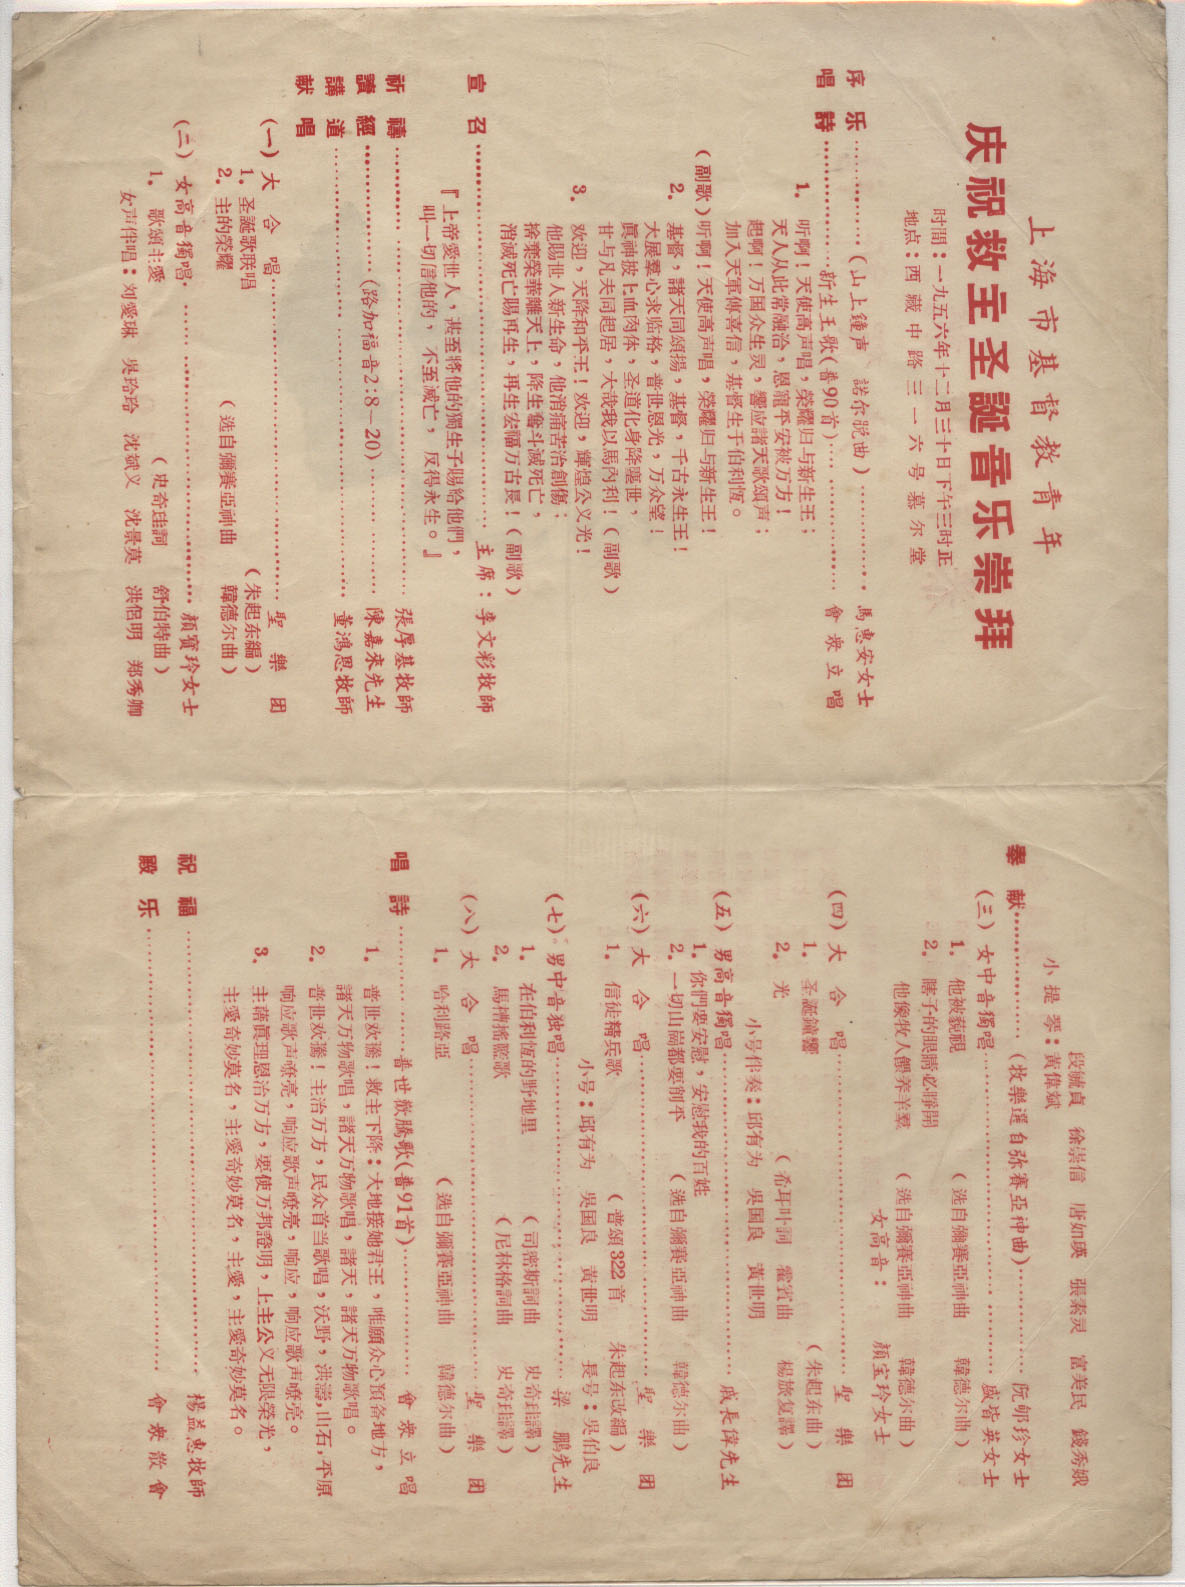 上海市基督教青年
庆祝救主圣誕音乐崇拜
时間：一九五六年十二月三十日下午三时正
地点：西藏中路三一六号慕尔堂
序乐…………（山上鐘声　諾尔脱曲）…………馬惠安女士
唱詩…………新生王歌(番90首)…………會衆立唱
1. 听啊！天使高声唱，荣耀归与新生王；
天人从此常融洽，恩寵平安被万方！
起啊！万国众生灵，響应諸天歌頌声；
加入天軍傳喜信，基督生于伯利恆。
(副歌)听啊！天使高声唱，荣耀归与新生王！
2. 基督，諸天同頌揚，基督，千古永生王！
大展羣心求临格，普世恩光，万众望！
眞神披上血肉体，圣道化身降塵世，
甘与凡夫同起居，大哉我以馬內利！(副歌)
3. 欢迎，天降和平王！欢迎，輝煌公义光！
他賜世人新生命，他消痛苦治創傷；
捨棄榮華離天上，降生奮斗滅死亡，
消滅死亡賜再生，再生宏福万古長！(副歌)
宣召…………主席：李文彩牧師
『上帝愛世人，甚至將他的獨生子賜給他們，
叫一切信他的，不至滅亡，反得永生。』
祈禱…………張厚基牧師
讀經…………(路加福音2:8—20)…………陳嘉來先生
講道…………董鴻恩牧師
献唱
(一)大合唱…………聖樂团
1. 圣誕歌联唱　(朱起东編)
2. 主的榮耀　(选自彌賽亞神曲　韓德尔曲)
(二)女高音獨唱…………顏寶玲女士
1. 歌頌主愛　(史奇珪詞　舒伯特曲)
女声伴唱：刘愛琳　吳玲玲　沈斌义　沈景英　洪侶明　郑秀卿
段毓貞　徐崇信　唐如瑛　張素灵　富美民　錢秀娥
小提琴：黃偉斌
奉献…………(牧樂選自弥賽亞神曲)…………阮郇珍女士
(三)女中音獨唱…………盛皆英女士
1. 他被藐視　(选自彌賽亞神曲　韓德尔曲)
2. 瞎子的眼睛必睜開
他像牧人餵养羊羣　(选自彌賽亞神曲　韓德尔曲)
女高音：　顏宝玲女士
(四)大合唱…………聖樂团
1. 圣誕鐘響　(朱起东曲)
2. 光　(希耳叶詞　霍賓曲　楊旅复譯)
小号伴奏：邱有为　吳国良　黃世明
(五)男高音獨唱…………戚長偉先生
1. 你們要安慰，安慰我的百姓
2. 一切山崗都要削平　(选自彌賽亞神曲　韓德尔曲)
(六)大合唱…………聖樂团
1. 信徒精兵歌　(普頌322首　朱起东改編)
小号：邱有为　吳国良　黃世明　長号：吳伯良
(七)男中音独唱…………梁鵬先生
1. 在伯利恆的野地里　(司密斯詞曲　史奇珪譯)
2. 馬槽搖籃歌　(尼林格詞曲　史奇珪譯)
(八)大合唱…………聖樂团
1. 哈利路亞　(选自彌賽亞神曲　韓德尔曲)
唱詩…………普世歡騰歌(番91首)…………會衆立唱
1. 普世欢騰！救主下降：大地接她君王，唯願众心預备地方，
諸天万物歌唱，諸天万物歌唱，諸天，諸天万物歌唱。
2. 普世欢騰！主治万方，民众首当歌唱，沃野，洪濤，山石，平原
响应歌声嘹亮，响应歌声嘹亮，响应，响应歌声嘹亮。
3. 主藉眞理恩治万方，要使万邦證明，上主公义无限榮光，
主愛奇妙莫名，主愛奇妙莫名，主愛，主愛奇妙莫名。
祝福…………楊益惠牧師
殿乐…………會衆散會